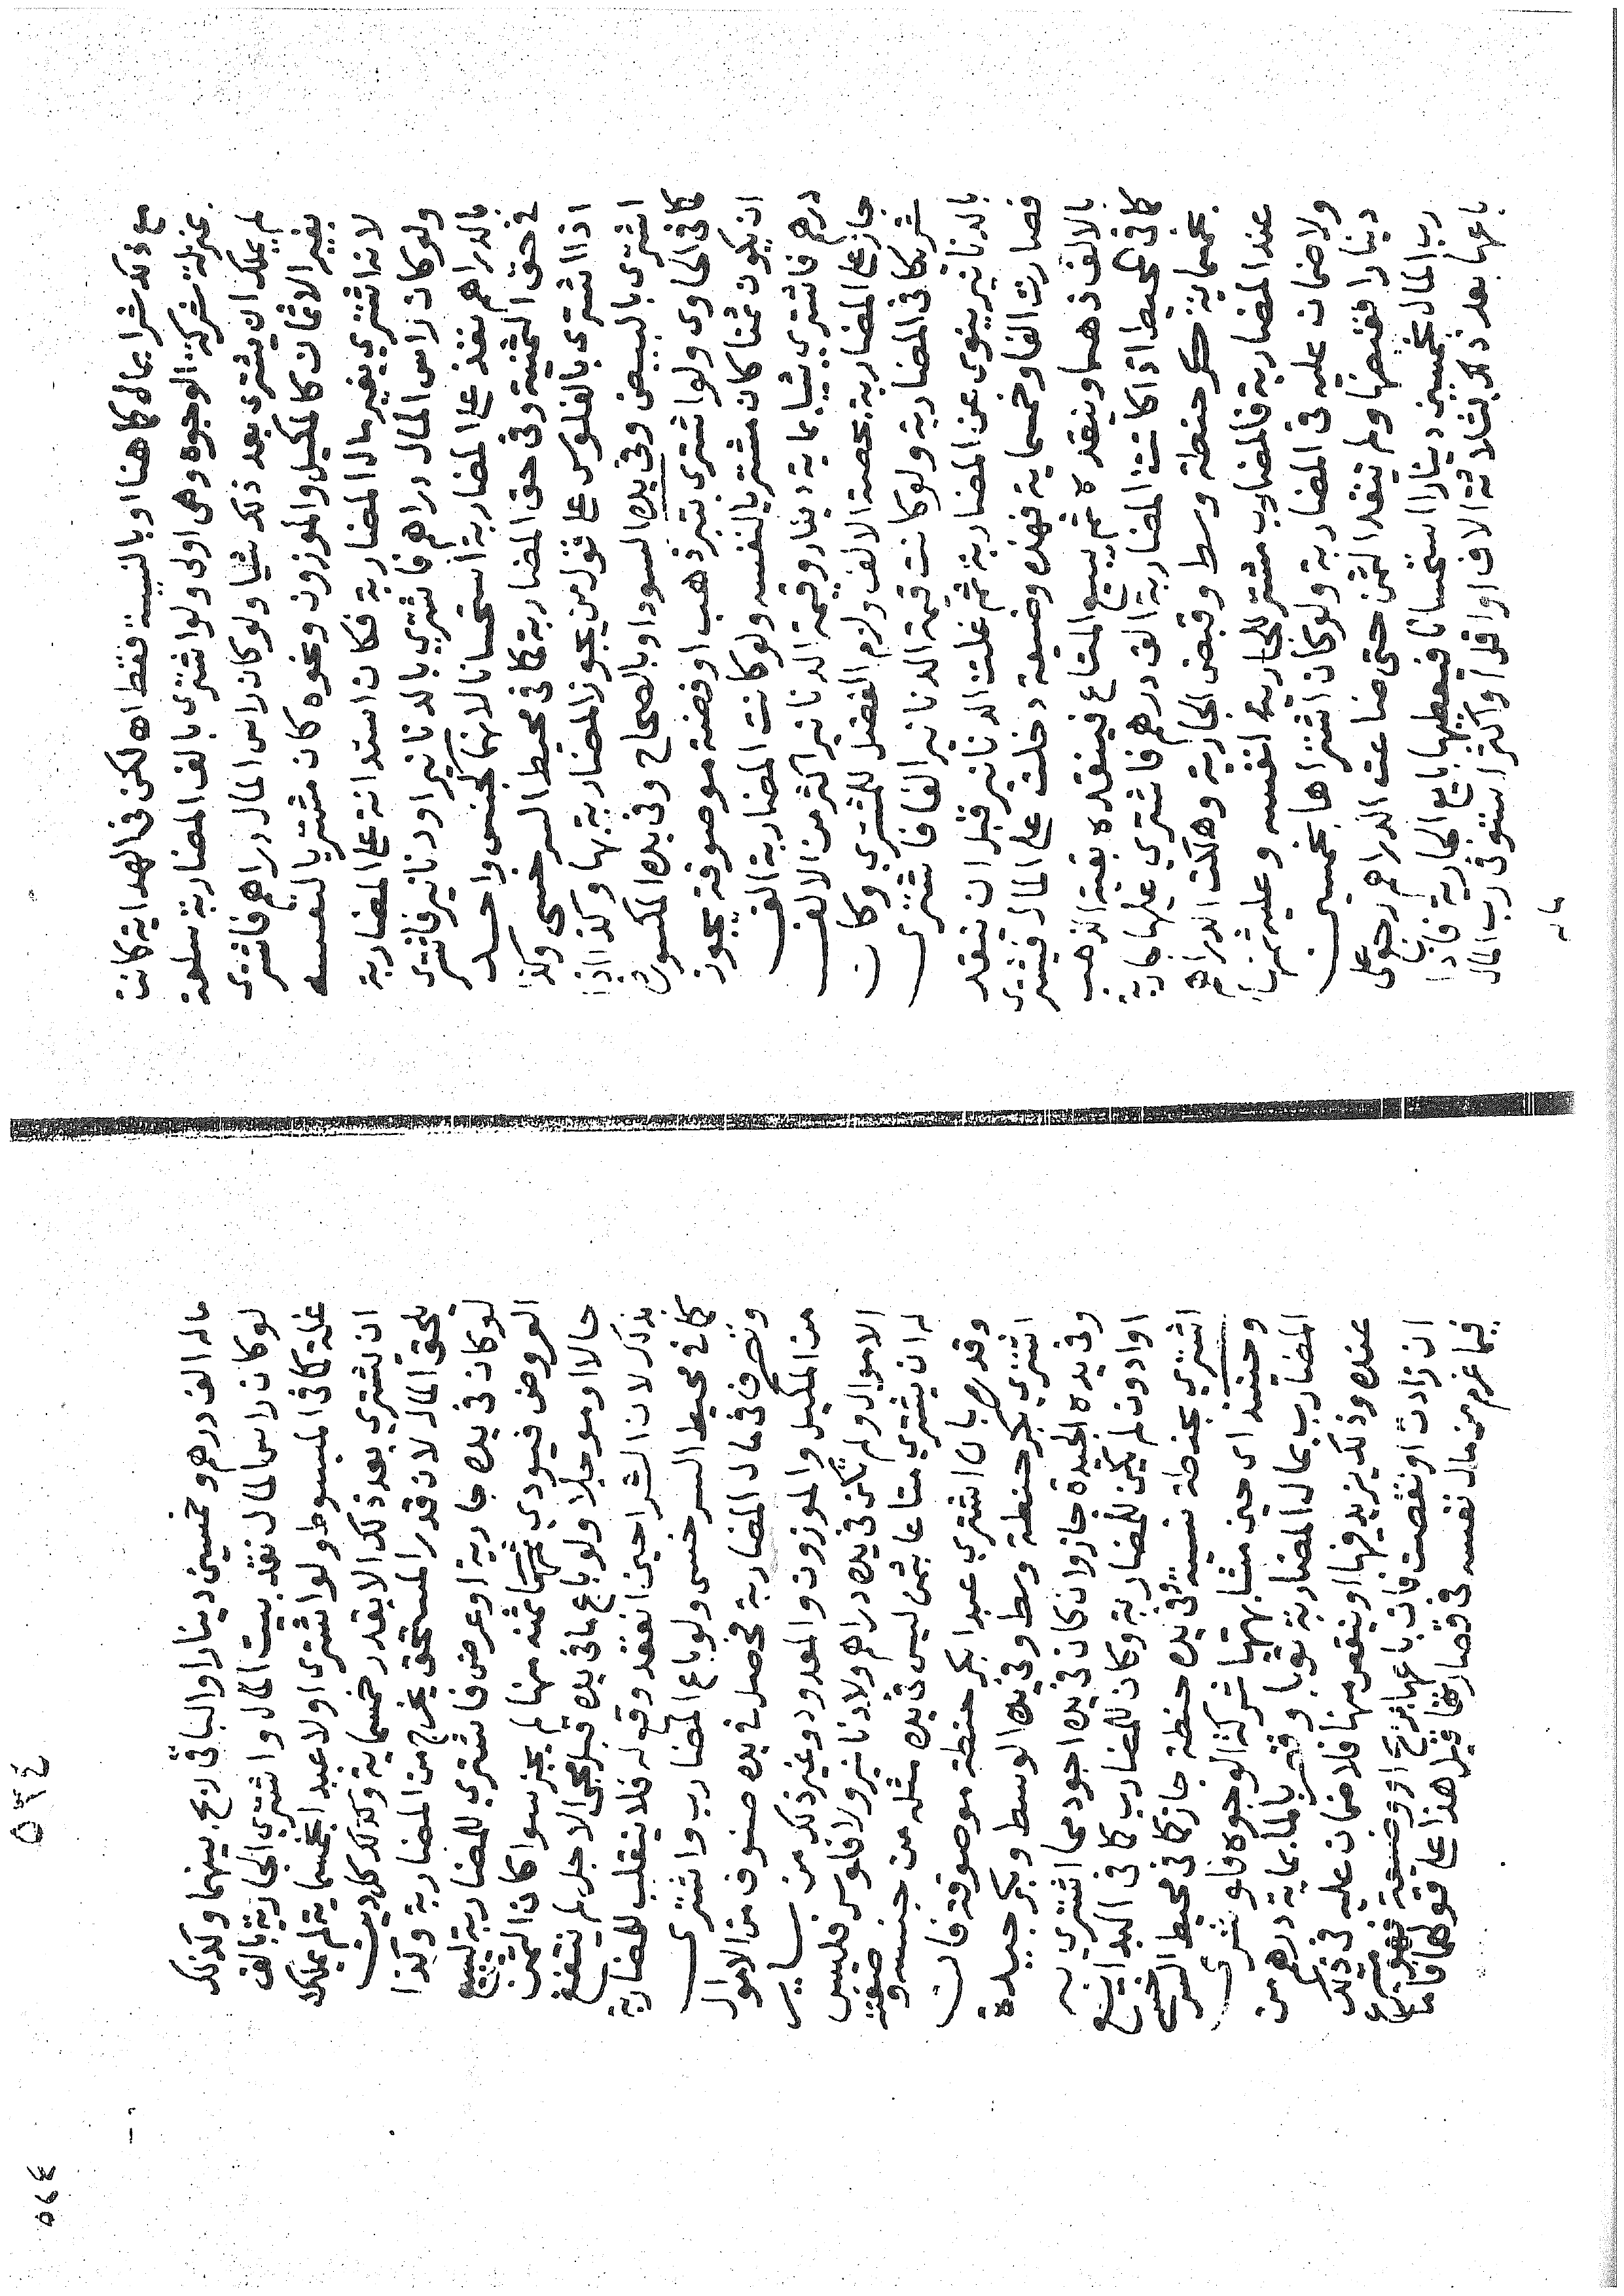 مع ذكر شرا بماله كما هنا او بالنسبة فقط اه لكن في الهداية كانت
بمنزلة شركة الوجوه وهي اولى ولو اشترى بالف المضاربة سلعة
لم يملك ان يشتري بعد ذلك شيا ولو كان راس المال دراهم فاشترى
بغير الاثمان كالمكيل والموزون ونحوه كان مشتريا لنفسه
لانه اشترى بغير مال المضاربة فكان استدانة على المضاربة
ولو كان راس المال دراهم فاشتري بالدنانير او دنانير فاشترى
بالدراهم نفذ على المضاربة استحسانا لانهما كجنس واحد
في حق الثمنية وفي حق المضاربة كما في محيط السرخسي وكذا
اذا اشترى بالفلوس على قول من يجوز المضاربة بها وكذا اذا
اشترى بالبيض وفي يده السود او بالصحاح وفي يده المكسوره
كما في الحاوى ولو اشترى بتبر ذهب او فضة موصوفة يجوز
ان يكون ثمنا كان مشتريا لنفسه ولو كانت المضاربة الف
درهم فاشترى شيا بماية دينار وقيمة الدنانير اكثر من الالف
جاز على المضاربة بحصة الالف ولزم الفضل للمشتري وكان
شريكا في المضاربة ولو كانت قيمة الدنانير الفا فاشترى
بالدنانير ينوى عن المضاربة ثم غلت الدنانير قبل ان تنقد
فصارت الفا وخمسماية فهذه وضيعة دخلت على المال فيشترى
بالالف ذهبا وينقده ثم يبيع المتاع فينقده بقية الذهب
كما في المحيط اذا كانت المضاربة الف درهم فاشتري عليها جارية
بخمسماية كر حنطة وسط وقبض الجارية وهلكت الدراهم
عند المضاربة فالمضارب مشتر للجارية لنفسه وعليه ثمنها
ولا ضمان عليه في المضاربة ولو كان اشتراها بخمسين
دينارا فقبضها ولم ينقد الثمن حتى ضاعت الدراهم رجع على
رب المال بخمسين دينارا استحسانا فيعطيها بايع الجارية فاذا
باعها بعد ذلك بثلاثة الاف او اقل او اكثر استوفى رب المال
ماله
ماله الف درهم وخمسين دينارا والباقي ربح بينهما وكذلك
لو كان راس المال نقد بيت المال واشترى الجارية بالف
غلة كما في المبسوط ولو اشترى اولا عبدا بخمسماية لم يملك
ان يشتري بعد ذلك الا بقدر خمسماية وكذلك كل دين
يلحق المال لان قدر المستحق يخرج من المضاربة وكذا
لو كان في يده جارية او عرض فاشتري للمضاربة ليبيع
العروض فيودي ثمنها ثمنه منها لم يجز سوا كان الثمن
حالا او موجلا ولو باع ما في يده قبل مجى الاجل لم ينتفع
بذلك لان الشرا حين انعقد وقع له فلا ينقلب للمضاربة
كما في محيط السرخسى ولو باع المضارب واشترى
وتصرف في مال المضاربة فحصل في يده صنوف من الاموال
من المكيل والموزون والمعدود وغير ذلك من ساير
الاموال ولم تكن في يده دراهم ولا دنانير ولا فلوس فليس
له ان يشتري متاعا بثمن ليس في يده مثله من جنسه وصفته
وقدره بان اشترى عبدا بكر حنطة موصوفة فان
اشترى بكر حنطة وسط وفي يده الوسط وبكر جيدة
وفي يده الجيدة جاز وان كان في يده اجود مما اشترى به
او ادون لم يكن للمضاربة وكان للمضارب كما في البدايع
اشترى بحنطة نسية وفي يده حنطة جاز كما في محيط السرخسى
وحينئذ اى حين مشابهتها شركة الوجوه فلو شرى
المضارب بمال المضاربة ثوبا وقصر بالماء بماية درهم من
عنده وذلك يزيد فيها او ينقص منها فلا ضمان عليه في ذلك
ان زادت او نقصت فان باعها بربح او وضيعة فهو متبرع
فيما غرم من مال نفسه في قصارتها قيل هذا على قولهما فاما
٥٣٤
٥٦٤